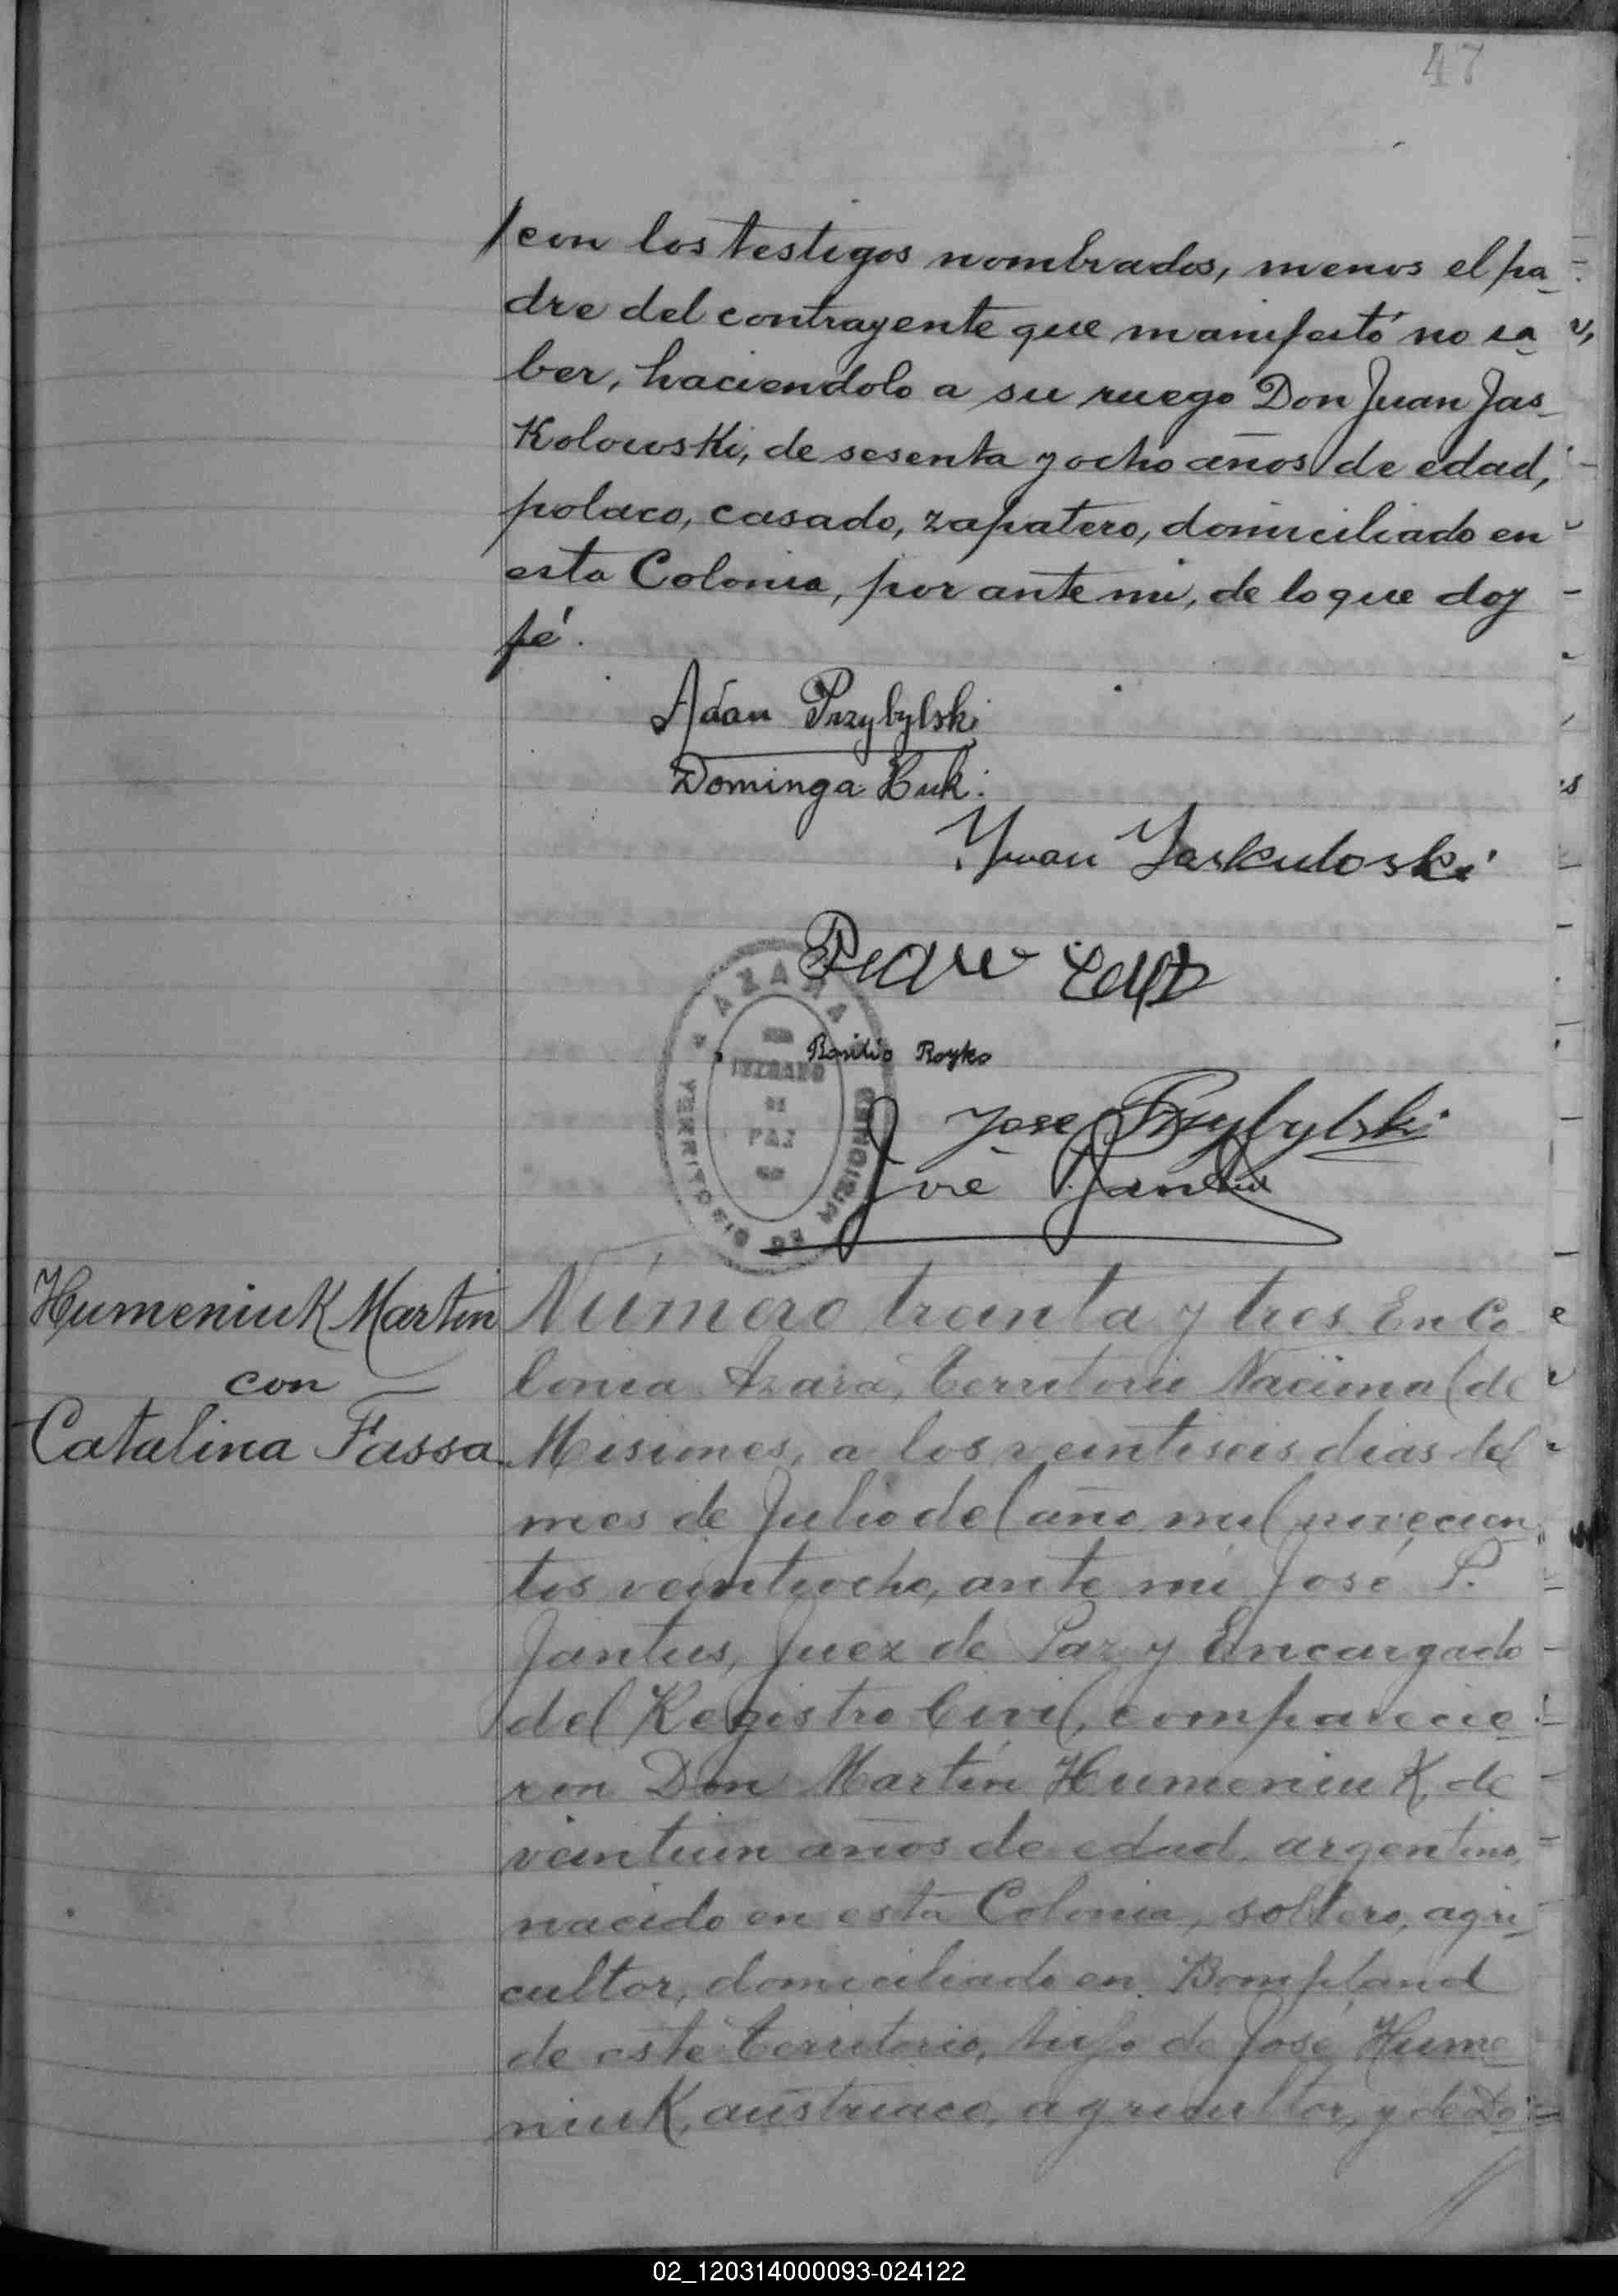 47
/con los testigos nombrados, menos el pa-
dre del contrayente que manifestó no sa-
ber, haciendolo a su ruego Don Juan Jas-
Kolowski, de sesenta y ocho años de edad,
polaco, casado, zapatero, domiciliado en
esta Colonia, por ante mi, de lo que doy
fé.
Adan Przybylski
Dominga Huk.
Juan Jaskuloski
AZARA
JUZGADO
DE
PAZ
TERRITORIO DE MISIONES
Basilio Royko
Jose Przybylski
José P. Jantus
HumeniuK Martin
con
Catalina Fassa
Número treinta y tres. En Co-
lonia Azara, Territorio Nacional de
Misiones, a los veintiseis dias del
mes de Julio del año mil novecien-
tos veintiocho, ante mi José P.
Jantus, Juez de Paz y Encargado
del Registro Civil, comparecie-
ron Don Martín HumeniuK, de
veintiun años de edad, argentino,
nacido en esta Colonia, soltero, agri-
cultor, domiciliado en Bompland
de este Territorio, hijo de José Hume-
niuK, austriaco, agricultor, y de Do-
02_120314000093-024122